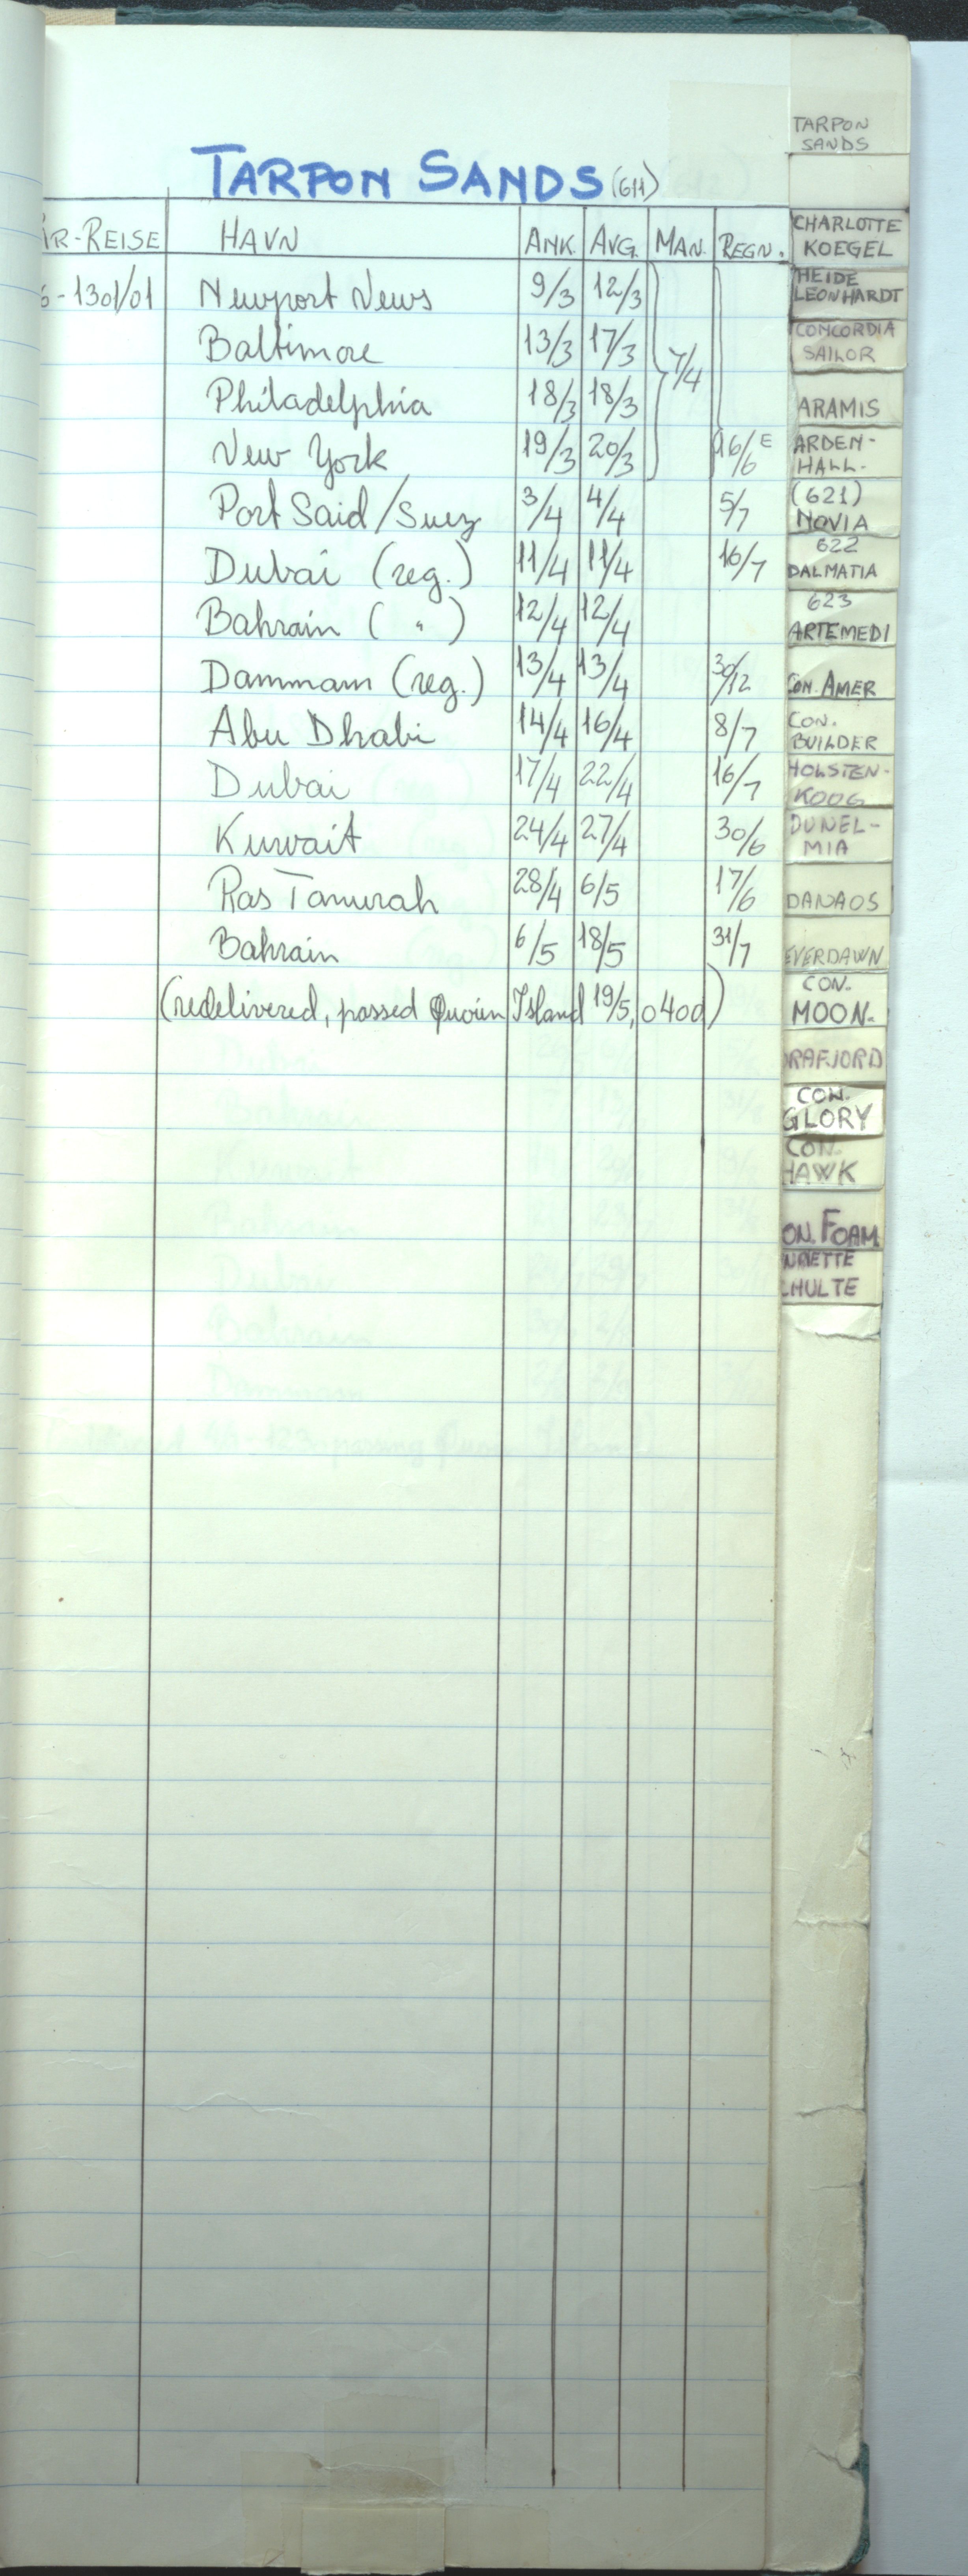 TARPON SANDS (611)
ÅR-REISE HAVN ANK. AVG. MAN. REGN.
6-1301/01 Newport News 9/3 12/3
Baltimore 13/3 17/3 7/4
Philadelphia 18/3 18/3
New York 19/3 20/3 16/6 E
Port Said/Suez 3/4 4/4 5/7
Dubai (reg.) 11/4 11/4 16/7
Bahrain ( " ) 12/4 12/4
Dammam (reg.) 13/4 13/4 30/12
Abu Dhabi 14/4 16/4 8/7
Dubai 17/4 22/4 16/7
Kuwait 24/4 27/4 30/6
Ras Tanurah 28/4 6/5 17/6
Bahrain 6/5 18/5 31/7
(redelivered, passed Quoin Island 19/5, 0400)
TARPON
SANDS
CHARLOTTE
KOEGEL
HEIDE
LEONHARDT
CONCORDIA
SAILOR
ARAMIS
ARDEN-
HALL.
(621)
NOVIA
622
DALMATIA
623
ARTEMEDI
CON. AMER
CON.
BUILDER
HOLSTEN-
KOOG
DUNEL-
MIA
DANAOS
EVERDAWN
CON.
MOON.
RAFJORD
CON.
GLORY
CON.
HAWK
ON. FOAM
NRIETTE
CHULTE